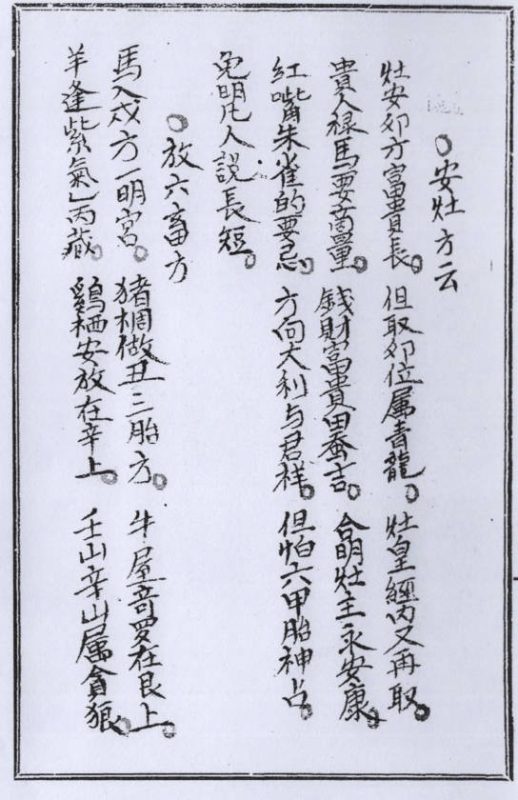 ○安灶方云
灶安卯方富貴長。但取卯位属青龍。灶皇經內又再取。
貴人禄馬要商量。錢財富貴田蚕吉。合明灶主永安康。
紅嘴朱雀的要忌。方向大利与君祥。但怕六甲胎神占。
免明凡人説長短。
○放六畜方
馬入戌方一明宮。猪棚做丑三胎方。牛屋竒罗在艮上。
羊逢紫氣丙藏。鷄栖安放在辛上。壬山辛山属貪狼。